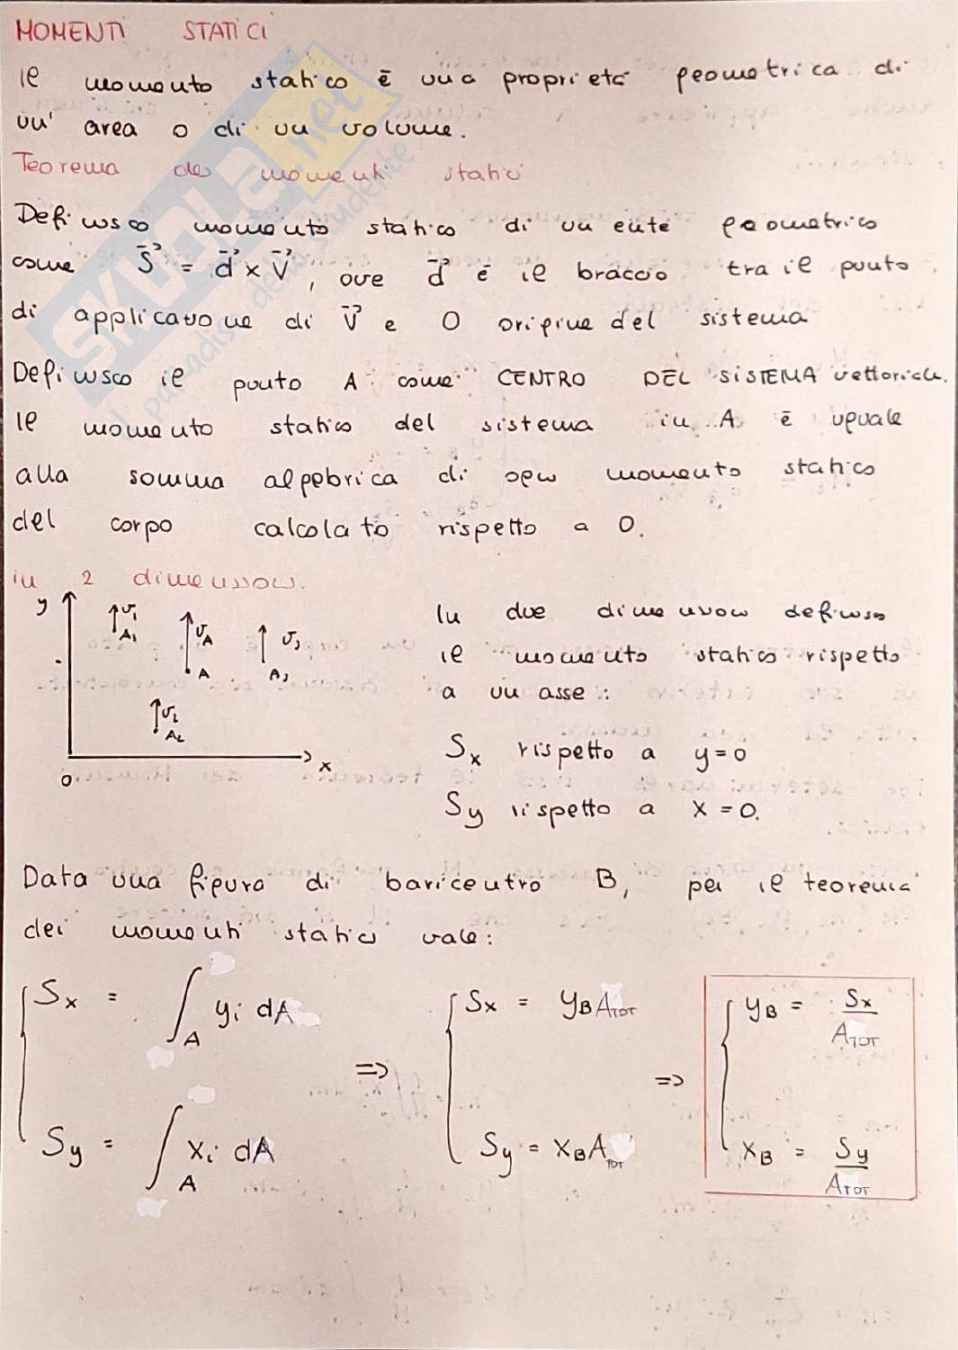 MOMENTI STATICI
Il momento statico è una proprietà geometrica di
un' area o di un volume.
Teorema dei momenti statici
Definisco momento statico di un ente geometrico
come S⃗ = d⃗ x V⃗, ove d⃗ è il braccio tra il punto
di applicazione di V⃗ e O origine del sistema
Definisco il punto A come CENTRO DEL SISTEMA vettoriale.
Il momento statico del sistema in A è uguale
alla somma algebrica di ogni momento statico
del corpo calcolato rispetto a O.
in 2 dimensioni.
y
v₁
A₁
v_A
A
v₃
A₃
v₂
A₂
O
x
In due dimensioni definisco
il momento statico rispetto
a un asse:
Sx rispetto a y=0
Sy rispetto a x=0.
Data una figura di baricentro B, per il teorema
dei momenti statici vale:
Sx = ∫_A yi dA => Sx = yB ATOT => yB = Sx/ATOT
Sy = ∫_A xi dA Sy = xB ATOT xB = Sy/ATOT
SKUOLA.net
il paradiso dello studente